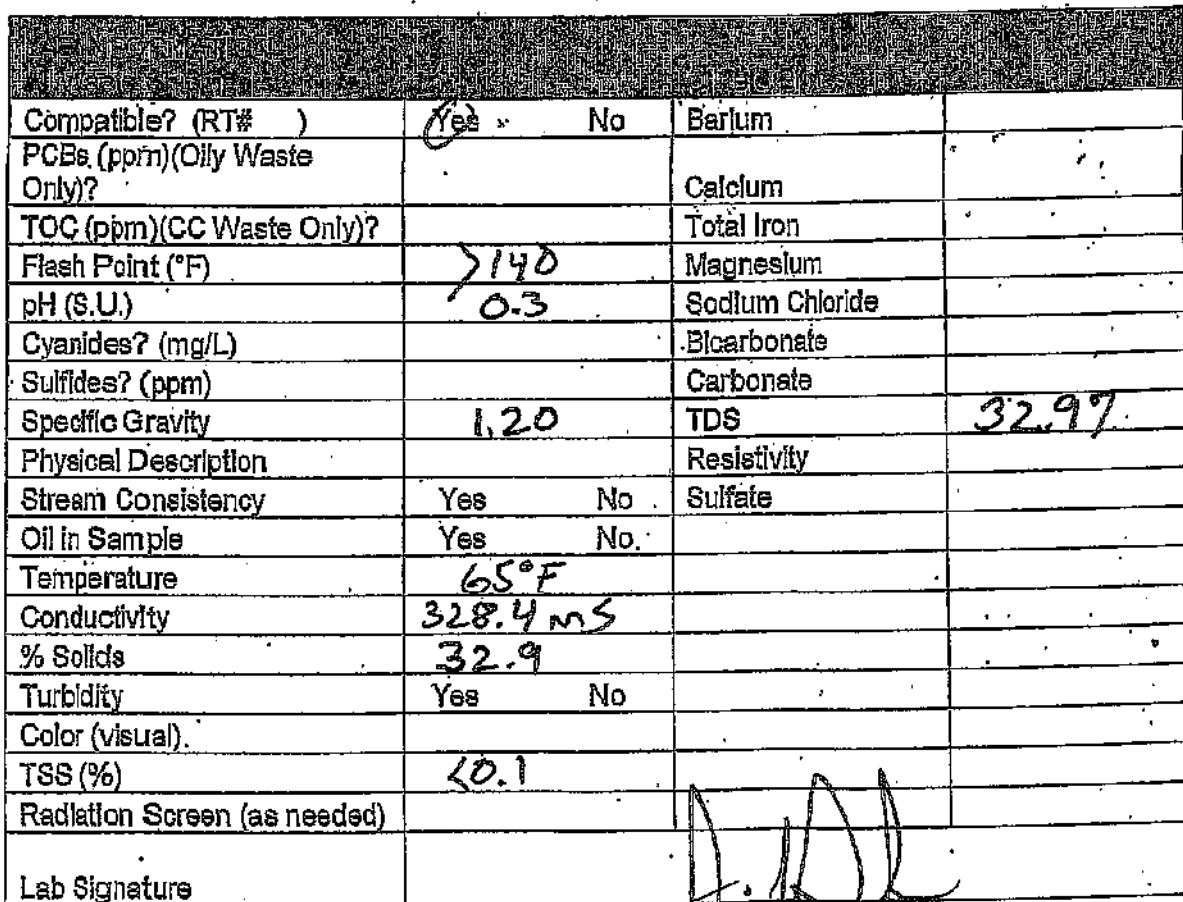 Compatible? (RT# ) Yes No Barium
PCBs (ppm)(Oily Waste
Only)? Calcium
TOC (ppm)(CC Waste Only)? Total Iron
Flash Point (°F) >140 Magnesium
pH (S.U.) 0.3 Sodium Chloride
Cyanides? (mg/L) Bicarbonate
Sulfides? (ppm) Carbonate
Specific Gravity 1.20 TDS 32.97
Physical Description Resistivity
Stream Consistency Yes No Sulfate
Oil in Sample Yes No
Temperature 65°F
Conductivity 328.4 mS
% Solids 32.9
Turbidity Yes No
Color (visual)
TSS (%) <0.1
Radiation Screen (as needed)
Lab Signature